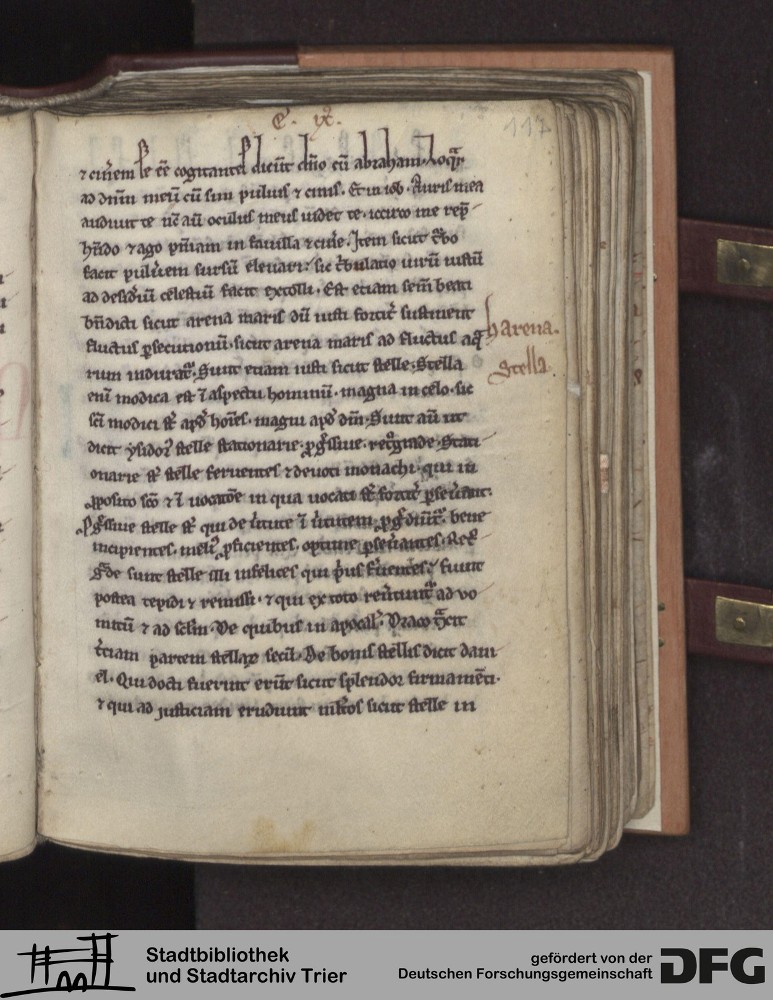 117
⁊ cin̄em se ēe cogitantes dicūt dn̄o cū abraham. Loqr̄
ad dnm̄ meū cū sim puluis ⁊ cinis. Et in iob. Auris mea
audiuit te nc̄ aū oculus meus uidet te. iccirco me rep̄
hn̄do ⁊ ago pn̄iam in fauilla ⁊ cin̄e. Item sicut t͛bo
facit pulu̅em sursū eleuari: sic t͛bulatio uirū iustū
ad desid̄iū celestiū facit extolli. Est etiam sem̄ beati
bn̄dicti sicut arena maris dū iusti fortit͛ sustinent
fluctus ꝑsecutionū. sicut arena maris ad fluctus aq̄
harena.
rum indurat͛. Sunt etiam iusti sicut stelle. Stella
Stella
eni modica est ī aspectu hominū. magna in celo. sic
sc̄i modici st̄ apd̄ hoīes. magni apd̄ dm̄. Sunt aū ut
dicit ysidor͛ stelle stationarie. ꝓg͛ssiue. ret͛grade. Stati
onarie st̄ stelle feruentes ⁊ deuoti monachi. qui in
ꝓposito sc̄o ⁊ ī uocatōe in qua uocati st̄ fortit͛ ꝑseu̅ant.
ꝓg͛ssiue stelle st̄ qui de u̅tute ī u̅tutem ꝓg͛diūt͛. bene
incipientes. meliꝰ ꝓficientes. optime ꝑseu̅antes. Ret͛
g͛de sunt stelle illi infelices qui p͛us feruentes fuunt
postea tepidi ⁊ remissi. ⁊ qui ex toto reu̅tunt͛ ad uo
mitū ⁊ ad sclm̄. De quibus in apocal͛. Draco t͛xit
t͛ciam partem stellaꝝ secū. De bonis stellis dicit dani
el. Qui docti fuerint erūt sicut splendor firmamēti.
⁊ qui ad iusticiam erudiunt ml̄tos sicut stelle in
Stadtbibliothek
und Stadtarchiv Trier
gefördert von der
Deutschen Forschungsgemeinschaft
DFG